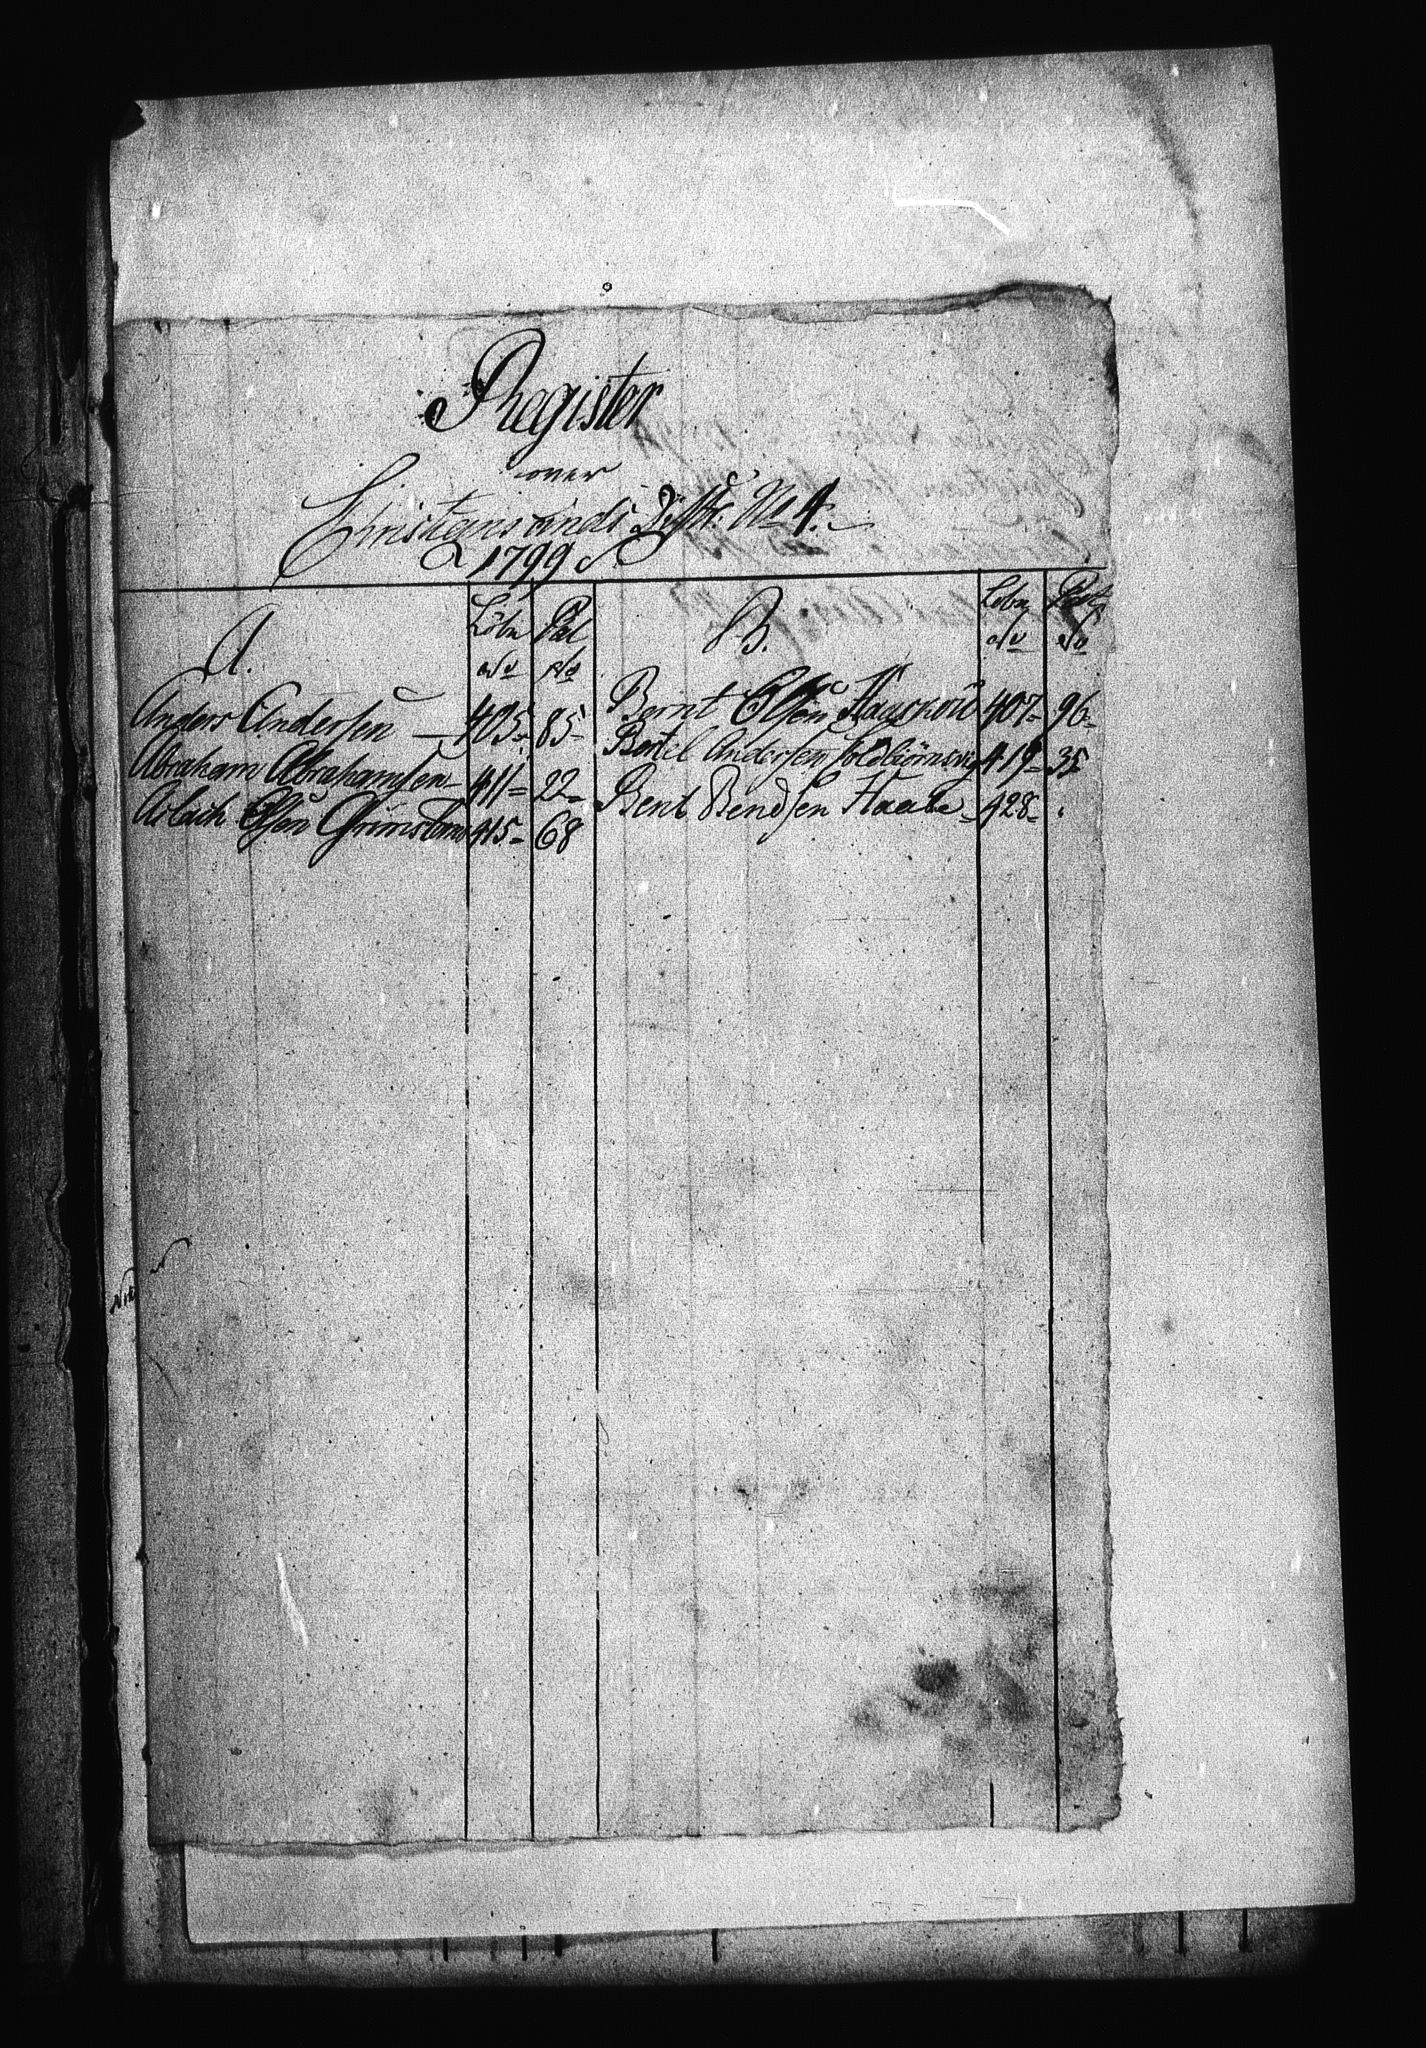 Register
over
Christiansands Distr. No 4.
1799
A. Löbe No Pat No
B. Lobe No Pat No
Anders Andersen 405 85
Abraham Abrahamsen 411 22
Aslach Olsen Grimstad 415 68
Bernt Olsen 407 96
Bertel Andersen 419 35
Bent Bendsen Haabe 428